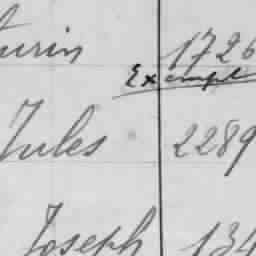 urin 1726
Exempt
Jules 2289
Joseph 134